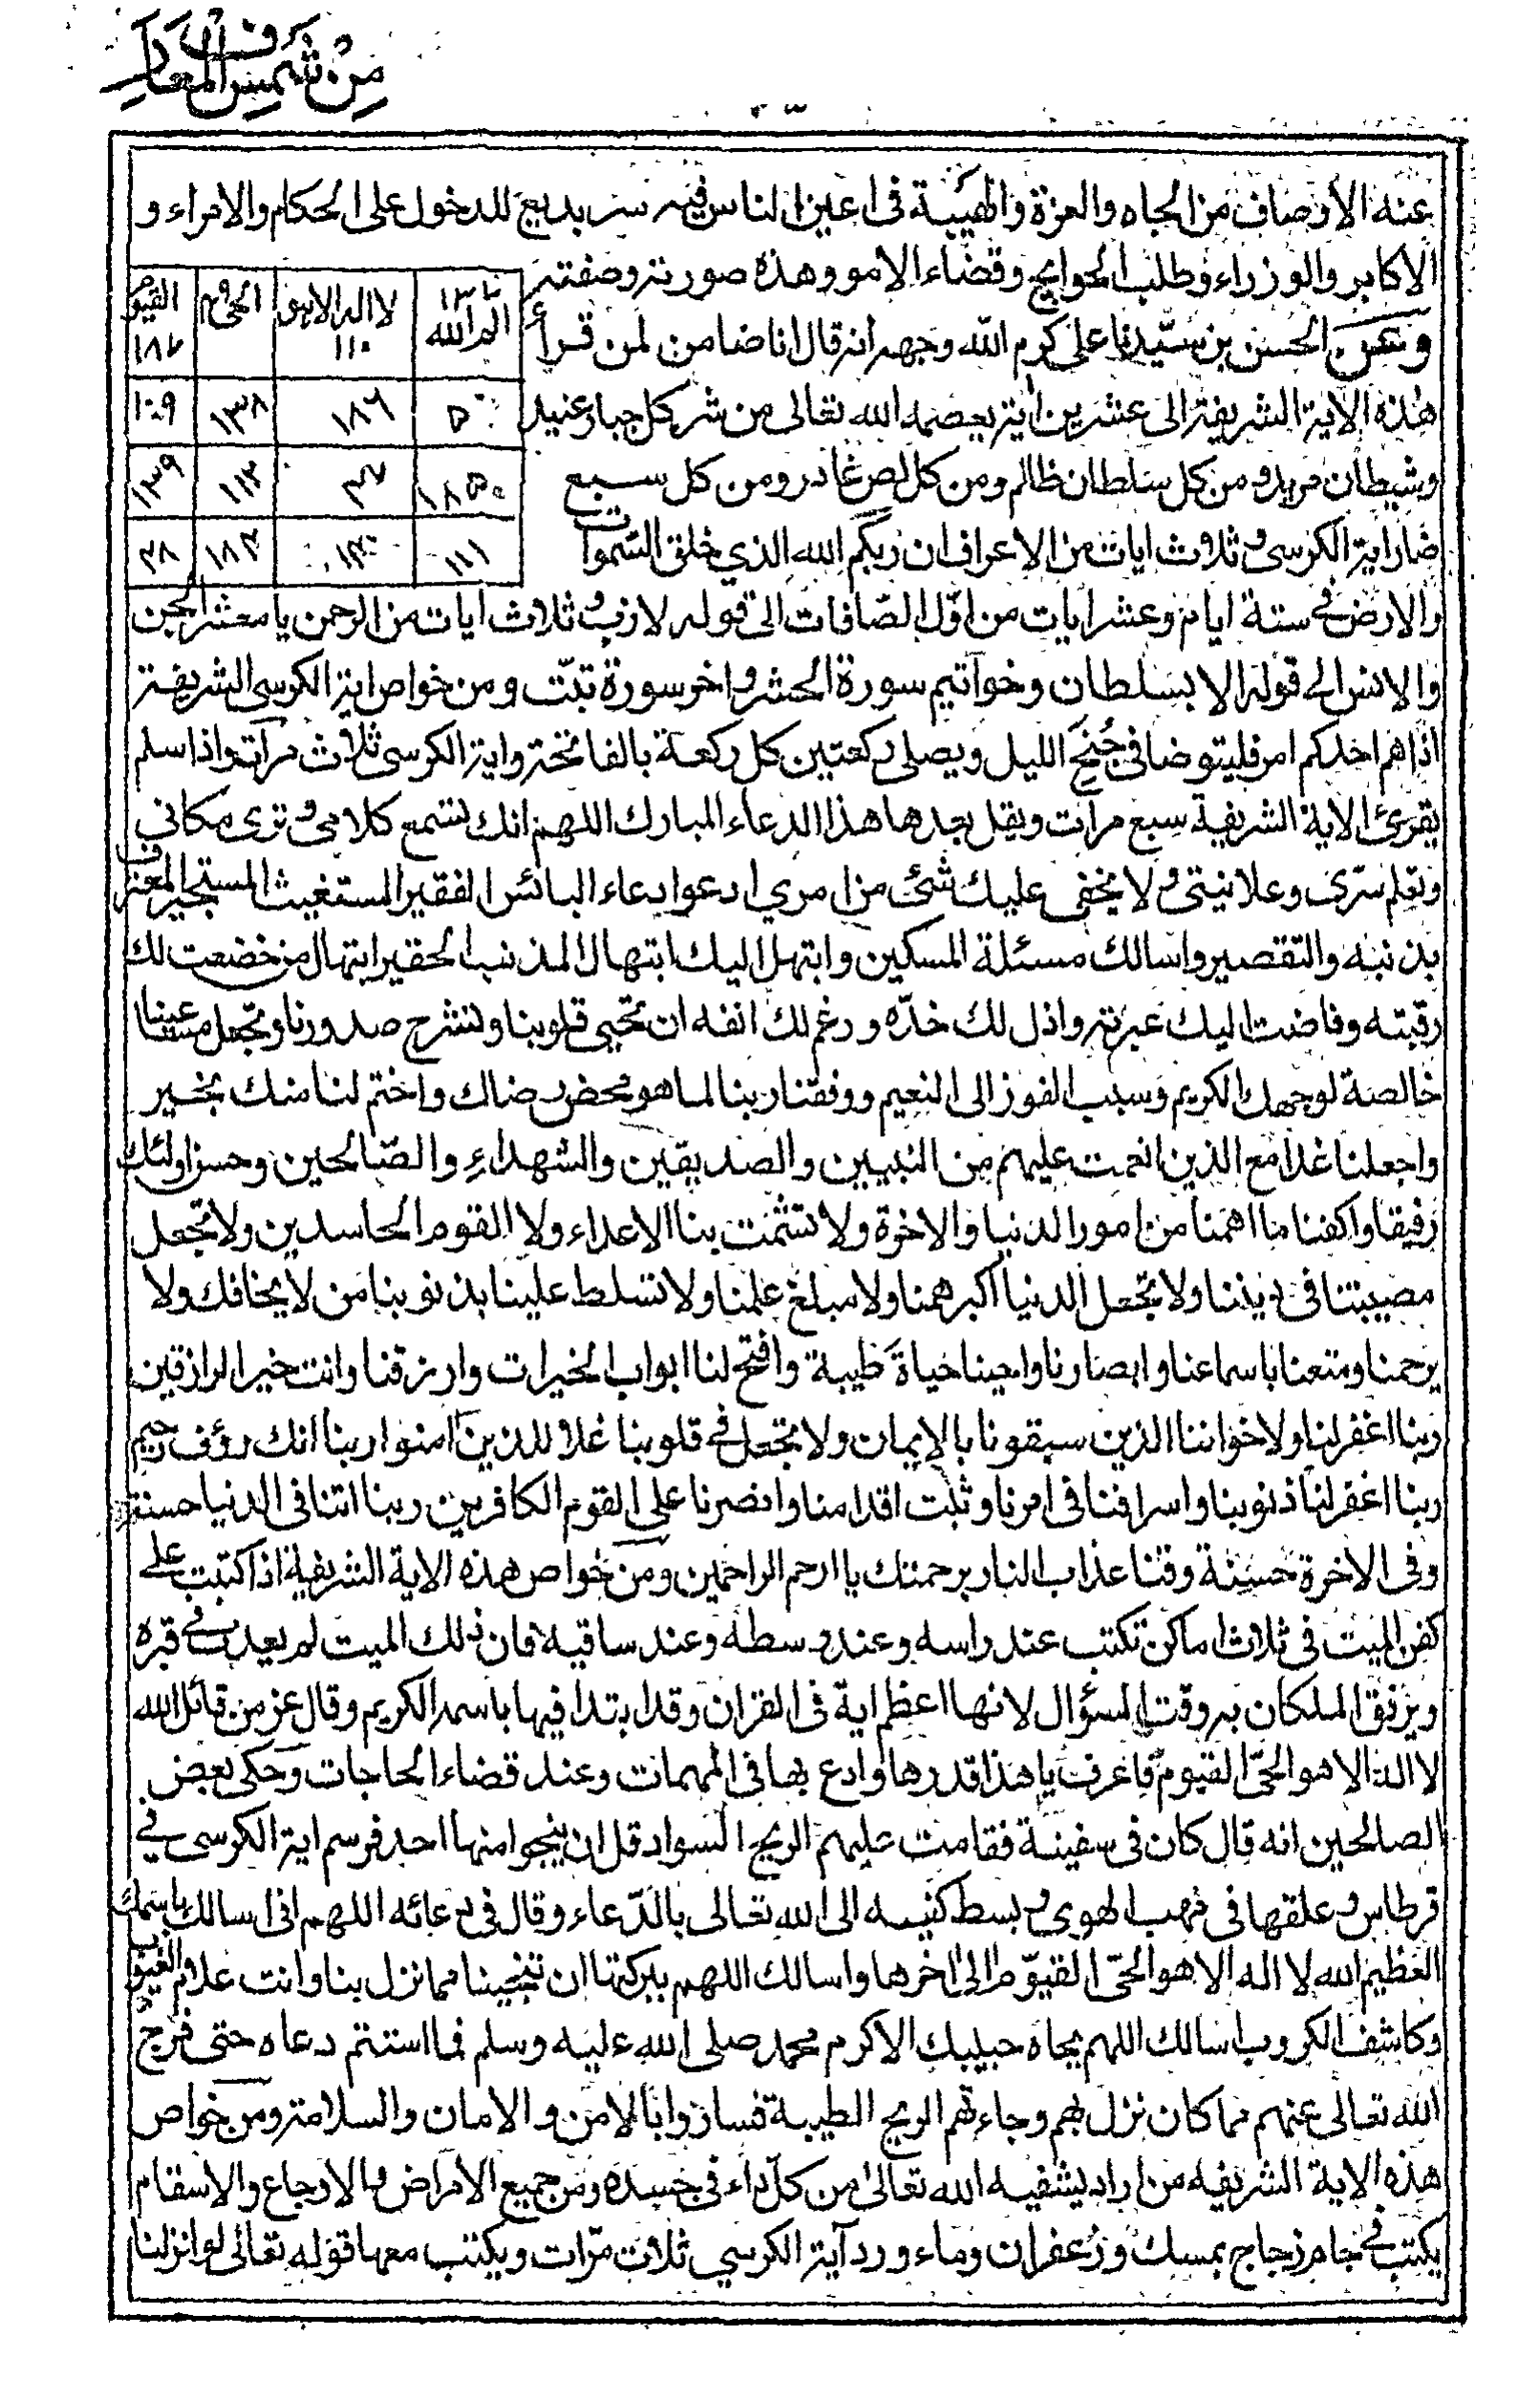 من شمس المعارف
عنه الاوصاف من الجاه والعزة والهيبة فى اعين الناس فيه سر بديع للدخول على الحكام والامراء و
الاكابر والوزراء وطلب الحوايج وقضاء الامو وهذه صورته وصفته
الله لا اله الا هو ١١٠ الحى القيوم ١٨٧
وعن الحسن بن سيّدنا على كرم الله وجهه انه قال انا ضامن لمن قرأ
٥٠ ١٨٦ ١٣٨ ١٠٩
هذه الاية الشريفة الى عشرين اية يعصمه الله تعالى من شر كل جبار عنيد
١٨٥ ٣٧ ١١٢ ١٣٩
وشيطان مريد ومن كل سلطان ظالم ومن كل لص غادر ومن كل سبع
١١١ ١٣٠ ١٨٣ ٣٨
ضار اية الكرسى وثلاث ايات من الاعراف ان ربكم الله الذي خلق السّموات
والارض فى ستة ايام وعشر ايات من اوّل الصّافات الى قوله لازب وثلاث ايات من الرحمن يا معشر الجن
والانس الى قوله الا بسلطان وخواتيم سورة الحشر واخر سورة تبّت ومن خواص اية الكرسى الشريفة
اذا هم احدكم امر فليتوضا فى جُنح الليل ويصلى ركعتين كل ركعة بالفاتحة واية الكرسى ثلاث مرات واذا سلم
يقرئ الاية الشريفة سبع مرات ويقل بعدها هذا الدعاء المبارك اللهم انك تسمع كلامى وترى مكانى
وتعلم سرّى وعلانيتى ولا يخفى عليك شئ من امري ادعوا دعاء البائس الفقير المستغيث المستجير المعترف
بذنبه والتقصير واسالك مسئلة المسكين وابتهل اليك ابتهال المذنب الحقير ابتهال من خضعت لك
رقبته وفاضت اليك عبرته واذل لك خدّه ورغم لك انفه ان تحيى قلوبنا وتشرح صدورنا وتجعل مساعينا
خالصة لوجهك الكريم وسبب الفوز الى النعيم ووفقنا ربنا لما هو محض رضاك واختم لنا منك بخير
واجعلنا غدا مع الذين انعمت عليهم من النبيين والصديقين والشهداء والصّالحين وحسن اولئك
رفيقا واكفنا ما اهمنا من امور الدنيا والاخرة ولا تشمت بنا الاعداء ولا القوم الحاسدين ولا تجعل
مصيبتنا فى ديننا ولا تجعل الدنيا اكبر همنا ولا مبلغ علمنا ولا تسلط علينا بذنوبنا من لا يخافك ولا
يرحمنا ومتعنا باسماعنا وابصارنا واحينا حياة طيبة وافتح لنا ابواب الخيرات وارزقنا وانت خير الرازقين
ربنا اغفر لنا ولاخواننا الذين سبقونا بالإيمان ولا تجعل فى قلوبنا غلا للذين آمنوا ربنا انك رؤف رحيم
ربنا اغفر لنا ذنوبنا واسرافنا فى امرنا وثبت اقدامنا وانصرنا على القوم الكافرين ربنا اتنا فى الدنيا حسنة
وفى الاخرة حسنة وقنا عذاب النار برحمتك يا ارحم الراحمين ومن خواص هذه الاية الشريفة اذا كتبت على
كفن الميت فى ثلاث اماكن تكتب عند راسه وعند وسطه وعند ساقيه فان ذلك الميت لم يعدب فى قبره
ويرفق الملكان به وقت السؤال لانها اعظم اية فى القران وقد ابتدا فيها باسمه الكريم وقال عز من قائل الله
لا اله الا هو الحىّ القيوم فاعرف يا هذا قدرها وادع بها فى المهمات وعند قضاء الحاجات وحكى بعض
الصالحين انه قال كان فى سفينة فقامت عليهم الريح السواد قل ان ينجوا منها احد فرسم اية الكرسى فى
قرطاس وعلقها فى مهب الهوى وبسط كفيه الى الله تعالى بالدّعاء وقال فى دعائه اللهم انى اسالك باسمك
العظيم الله لا اله الا هو الحىّ القيوّم الى اخرها واسالك اللهم ببركتها ان تنجينا مما نزل بنا وانت علام الغيوب
وكاشف الكروب اسالك اللهم بجاه حبيبك الاكرم محمد صلى الله عليه وسلم فما استتم دعاه حتى فرج
الله تعالى عنهم مما كان نزل بهم وجاءهم الريح الطيبة فساروا بالامن والامان والسلامة ومن خواص
هذه الاية الشريفه من اراد يشفيه الله تعالى من كل داء فى جسده ومن جميع الامراض والاوجاع والاسقام
يكتب فى جام زجاج بمسك وزعفران وماء ورد آية الكرسي ثلاث مرّات ويكتب معها قوله تعالى لو انزلنا